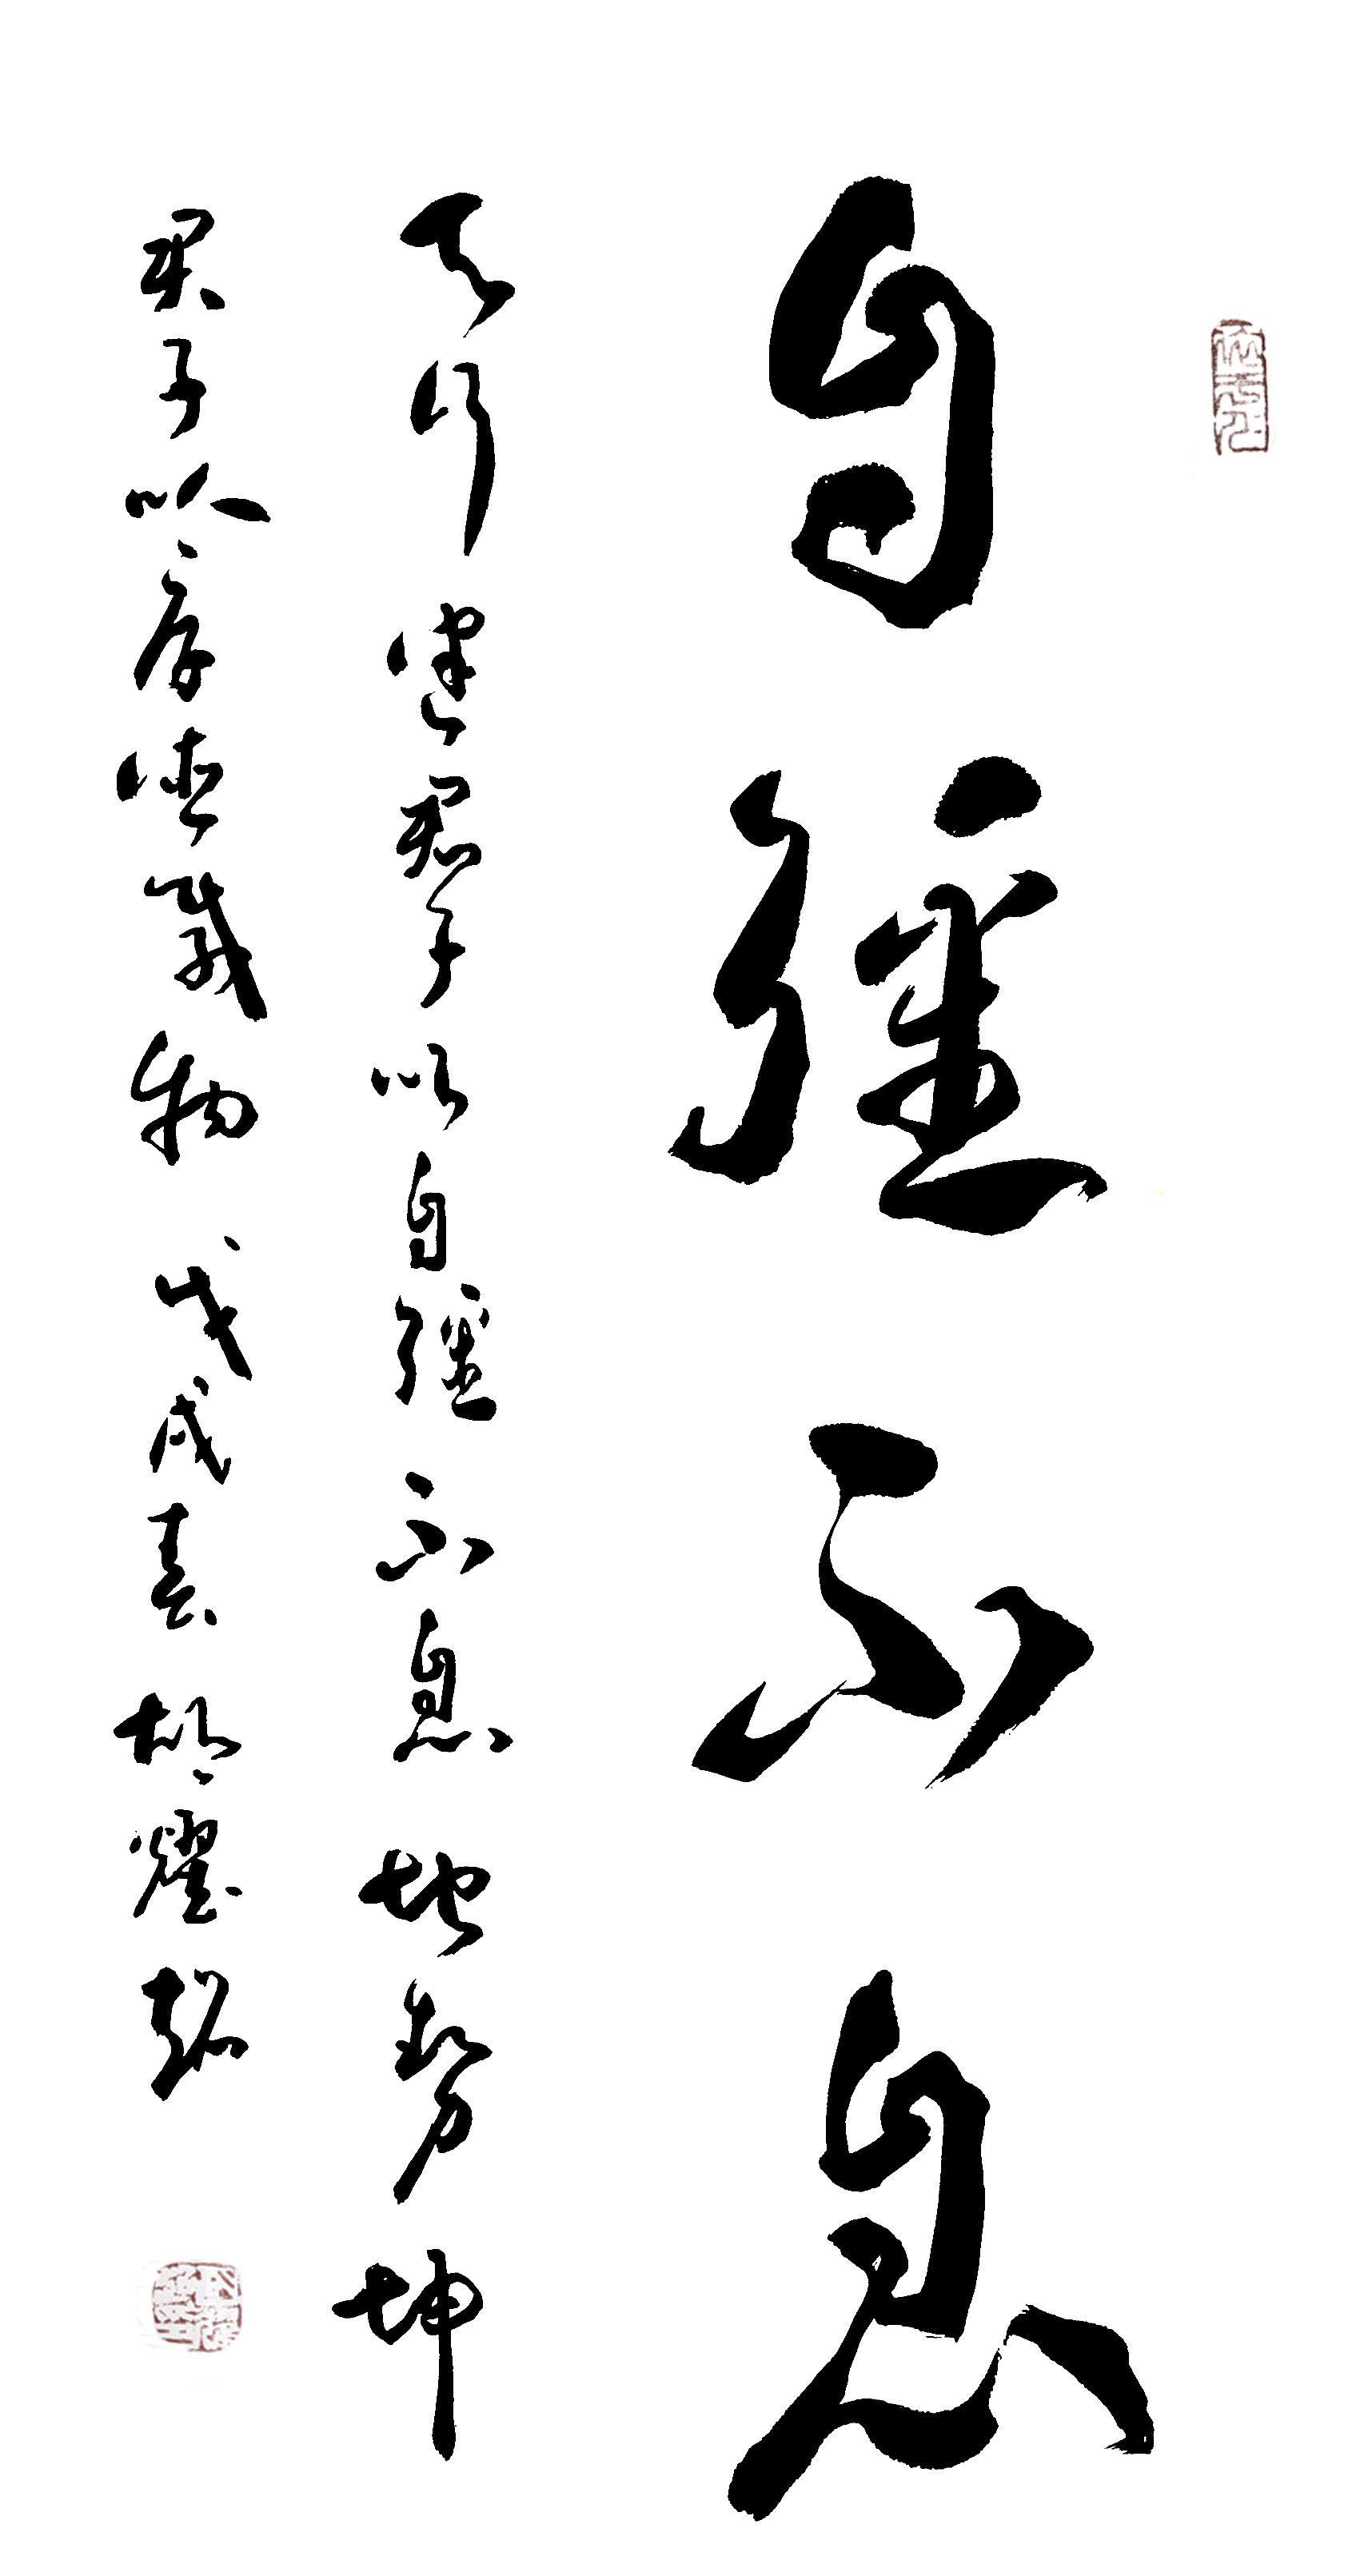 自强不息
天行健君子以自强不息地势坤
君子以厚德载物 戊戌春 胡耀